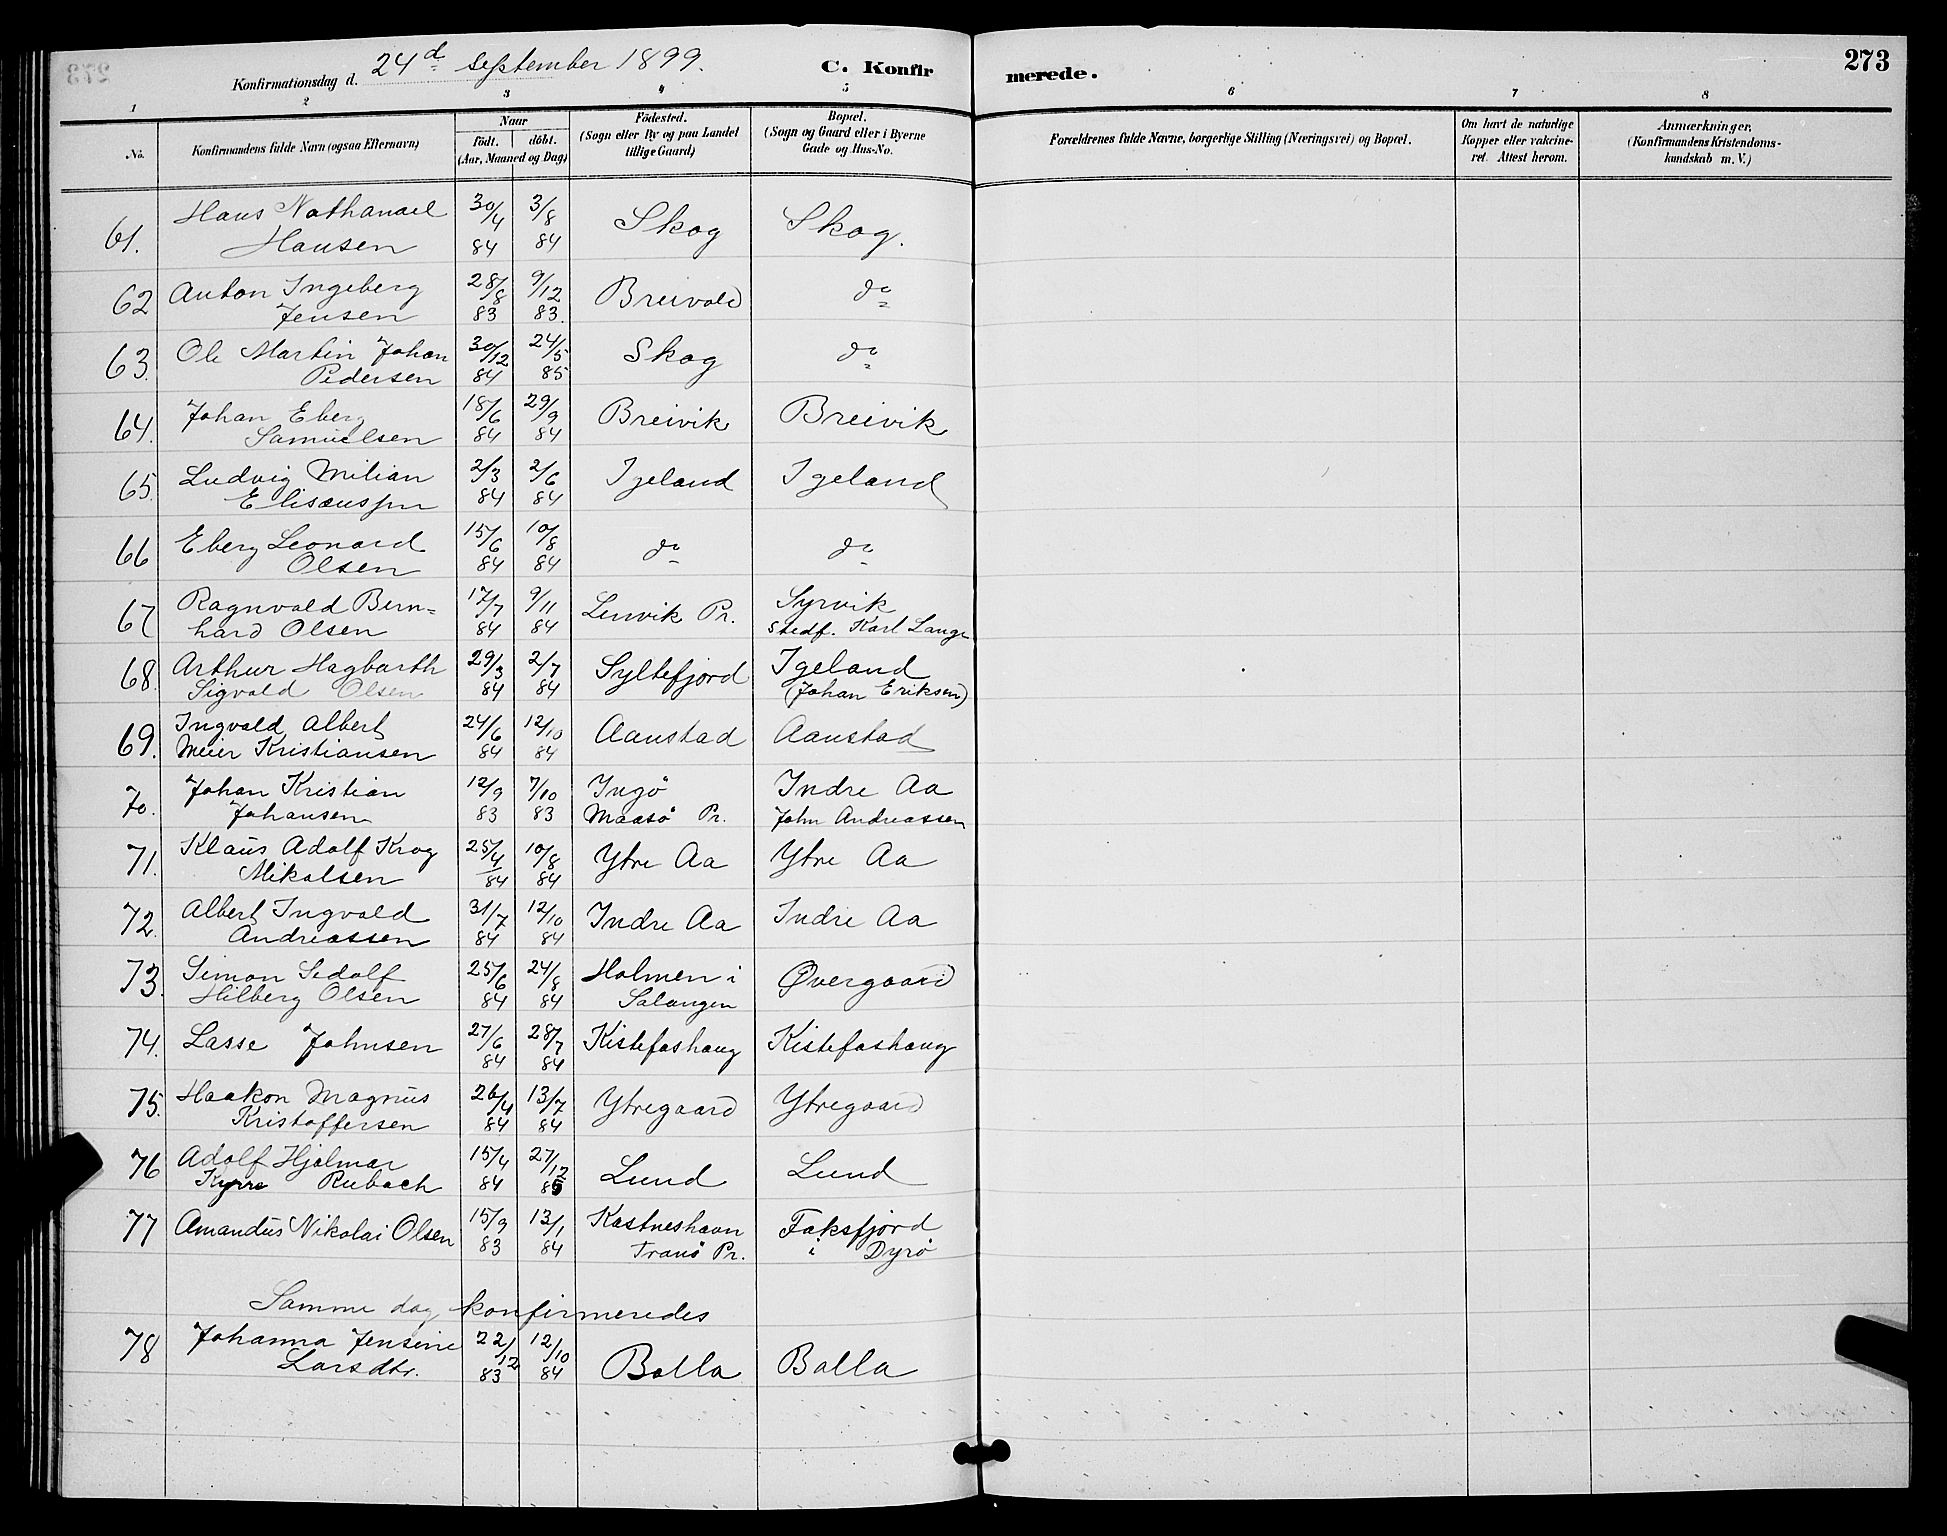 Konfirmationsdag d. 24d september 1899.
C. Konfir
merede.
273
1 2 3 4 5 6 7 8
No.
Konfirmandens fulde Navn (ogsaa Efternavn)
Naar
födt. döbt.
(Aar, Maaned og Dag)
Födested.
(Sogn eller By og paa Landet
tillige Gaard)
Bopæl.
(Sogn og Gaard eller i Byerne
Gade og Hus-No.
Forældrenes fulde Navne, borgerlige Stilling (Næringsvei) og Bopæl.
Om havt de naturlige
Kopper eller vakcine-
ret. Attest herom.
Anmærkninger.
(Konfirmandens Kristendoms-
kundskab m. V.)
61. Hans Nathanael 30/4 3/8 Skog Skog.
Hansen 84 84
62 Anton Ingeberg 28/8 9/12 Breivold do
Jensen 83 83.
63. Ole Martin Johan 30/12 24/5 Skog do
Pedersen 84 85
64. Johan Eberg 18/6 29/9 Breivik Breivik
Samuelsen 84 84
65. Ludvig Milian 2/3 2/6 Igeland Igeland
Elisæussen 84 84
66 Eberg Leonard 15/6 10/8 do do
Olsen 84 84
67 Ragnvald Bern= 17/7 9/11 Lenvik Pr. Syrvik
hard Olsen 84 84 stedf. Karl Lange
68. Arthur Hagbarth 29/3 2/7 Syltefjord Igeland
Sigvald Olsen 84 84 (Johan Eriksen)
69. Ingvald Albert 24/6 12/10 Aanstad Aanstad
Meier Kristiansen 84 84
70. Johan Kristian 12/9 7/10 Ingö Indre Aa
Johansen 83 83 Maasö Pr. John Andreassen
71. Klaus Adolf Krog 25/4 10/8 Ytre Aa Ytre Aa
Mikalsen 84 84
72. Albert Ingvald 31/7 12/10 Indre Aa Indre Aa
Andreassen 84 84
73. Simon Sedolf 25/6 24/8 Holmen i Øvergaard
Hilberg Olsen 84 84 Salangen
74. Lasse Johnsen 27/6 28/7 Kistefoshaug Kistefoshaug
84 84
75. Haakon Magnus 26/4 13/7 Ytregaard Ytregaard
Kristoffersen 84 84
76 Adolf Hjalmar 15/4 27/12 Lund Lund
Kyrre Rubach 84 85
77 Amandus Nikolai Olsen 15/9 13/1 Kastneshavn Faksfjord
83 84 Tranö Pr. i Dyrö
Samme dag konfirmeredes
78 Johanna Jensine 22/12 12/10 Bolla Bolla
Larsdtr. 83 84